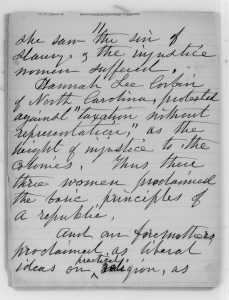 she saw the sin of
slavery, & the injustice
women suffered.
Hannah Lee Corbin
of North Carolina, protested
against "taxation without
representation," as the
height of injustice to the
colonies. Thus these
three women proclaimed
the basic principles of
a republic.
And our foremothers
proclaimed as liberal
ideas on practical religion, as